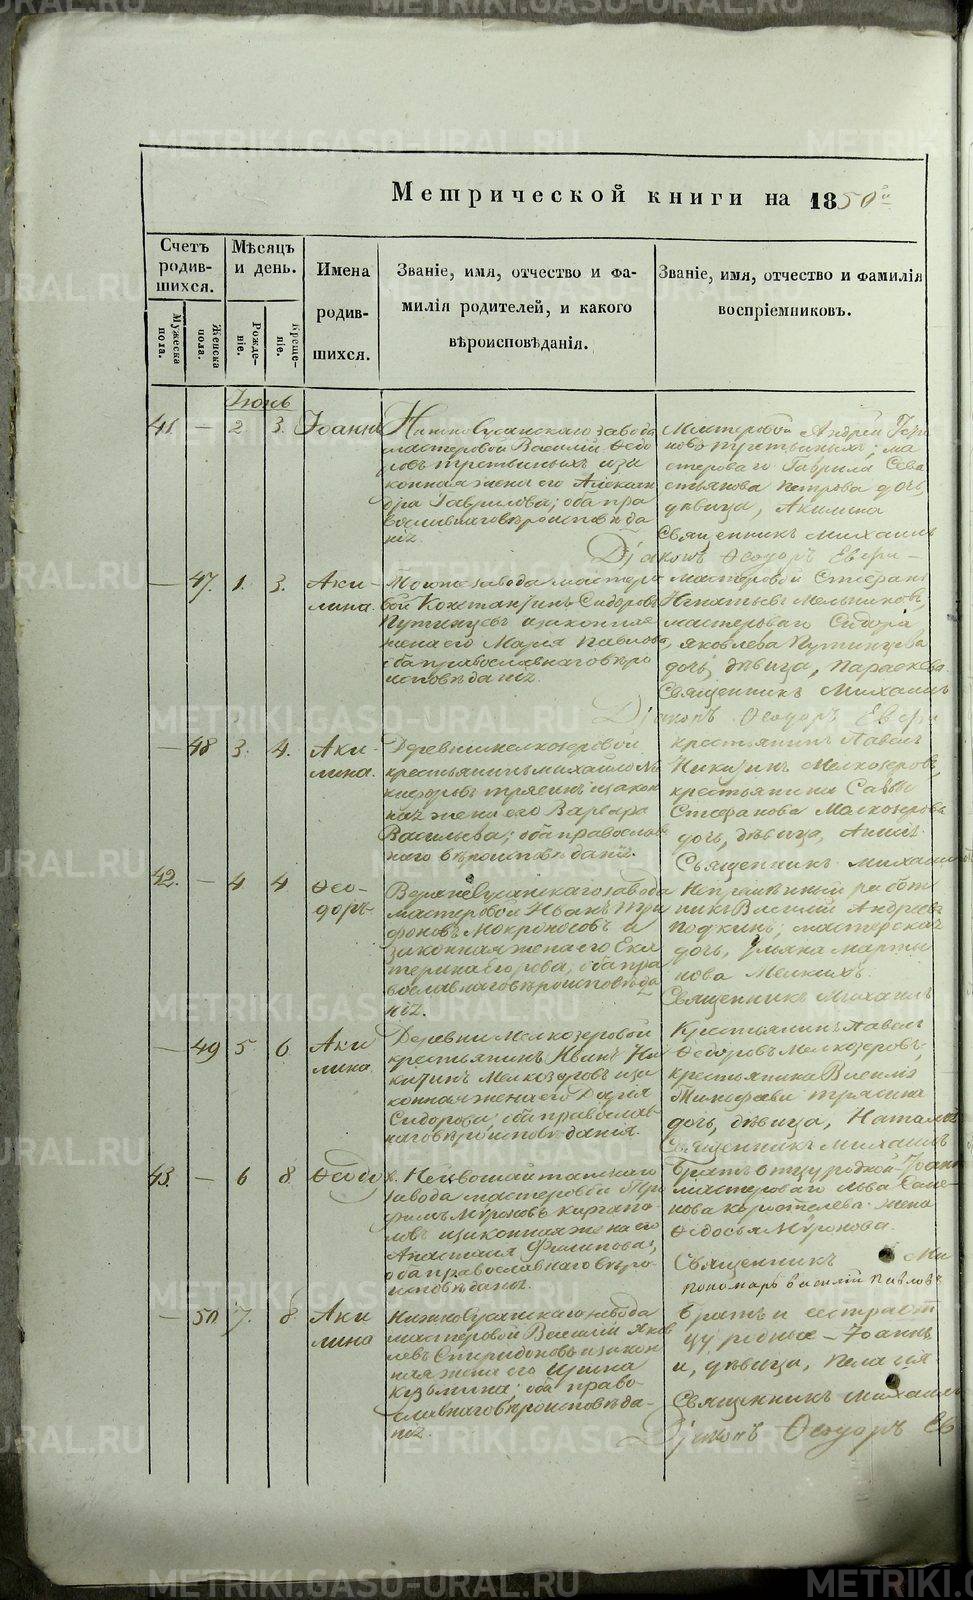 Метрической книги на 1850й
Счетъ родив-шихся.
Мужеска пола.
Женска пола.
Мѣсяцъ и день.
Рожде-ніе.
Креще-ніе.
Имена
родив-
шихся.
Званіе, имя, отчество и фа-
милія родителей, и какого
вѣроисповѣданія.
Званіе, имя, отчество и фамилія
воспріемниковъ.
Іюнь
41 — 2 3. Іоаннъ
завода
мастеровой Василій Ѳедо
ровъ Третьиныхъ и за
конная жена его Алексан
дра Гаврилова; оба пра
вославнаго вѣроисповѣда
нія.
Мастеровой Андрей
ма
стероваго Гаврила Сева
стьянова Петрова дочь,
дѣвица, Акилина
Священникъ Михаилъ
Діаконъ Ѳеодоръ
— 47. 1. 3. Аки-
лина.
Того же завода мастеро
вой Константинъ Сидоровъ
Путинцевъ и законная
жена его Марія Павлова
оба православнаго вѣро
исповѣданія.
мастеровой Стефанъ
Игнатьевъ Мельниковъ,
мастероваго Сидора
Яковлева Путинцева
дочь, дѣвица, Параскева
Священникъ Михаилъ
Діаконъ Ѳеодоръ
— 48 3. 4. Аки-
лина.
Деревни Мелкозеровой
крестьянинъ Михайло Ни
кифоровъ Трясинъ и закон
ная жена его Варвара
Васильева; оба православ
наго вѣроисповѣданія.
крестьянинъ Павелъ
Никитинъ Мелкозеровъ,
крестьянина Савы
Стефанова Мелкозерова
дочь, дѣвица, Анна.
Священникъ Михаилъ
42. — 4 4 Ѳео-
доръ
завода
мастеровой Иванъ Три
фоновъ Мокроносовъ и
законная жена его Ека
терина Егорова, оба пра
вославнаго вѣроисповѣда
нія.
Непремѣнный работ
никъ Василій Андреевъ
мастерская
дочь, Ульяна Марты
нова Мелкихъ.
Священникъ Михаилъ
— 49 5. 6. Аки
лина
Деревни Мелкозеровой
крестьянинъ Иванъ Ни
китинъ Мелкозеровъ и за
конная жена его Дарія
Сидорова, оба православ-
наго вѣроисповѣданія.
Крестьянинъ Павелъ
Ѳедоровъ Мелкозеровъ,
крестьянина Василія
Тимофѣева Трясина
дочь, дѣвица, Наталья
Священникъ Михаилъ
43. — 6 8
завода мастеровой Тро
фимъ Мироновъ
и законная жена его
Анастасия Филипова,
оба православнаго вѣро-
исповѣданія.
Братъ отцу родной Іоаннъ
мастероваго Льва Семе-
нова Коротелева жена
Ѳедосья Миронова.
Священникъ
пономарь Василій Павловъ
— 50 7. 8 Аки
лина
завода
мастеровой Василій Яков
левъ Спиридоновъ и закон
ная жена его Ирина
Кузьмина; оба право-
славнаго вѣроисповѣда-
нія.
Братъ и сестра от
цу родные — Іоаннъ
и, дѣвица, Пелагія
Священникъ Михаилъ
Діаконъ Ѳеодоръ
METRIKI.GASO-URAL.RU